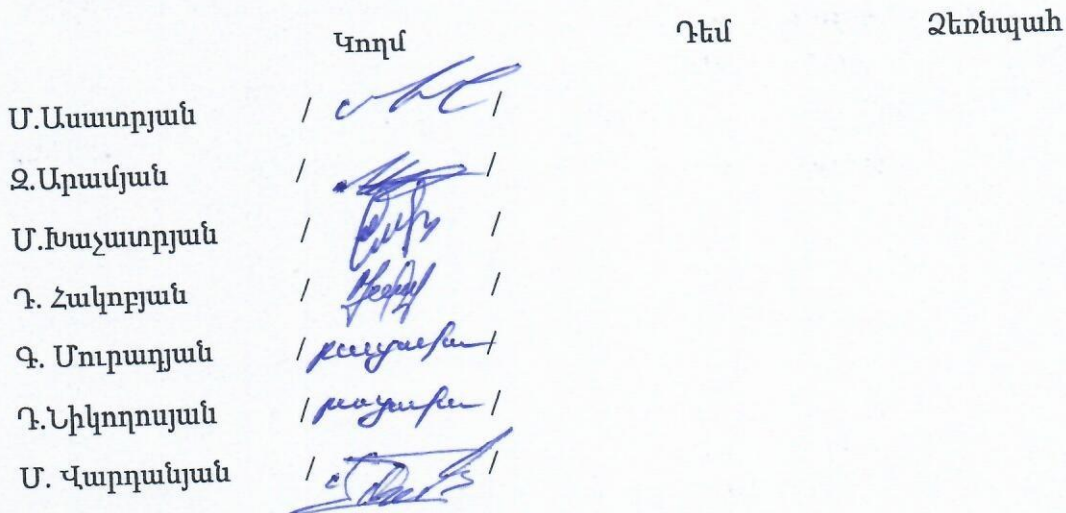 Կողմ Դեմ Ձեռնպահ
Մ.Ասատրյան / /
Զ.Արամյան / /
Մ.Խաչատրյան / /
Դ. Հակոբյան / /
Գ. Մուրադյան / բացակա /
Դ.Նիկողոսյան / բացակա /
Մ. Վարդանյան / /